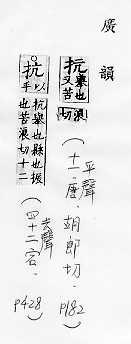 廣韻
抗 舉也又苦
浪切
(平聲
十一唐．胡郎切．P182)
抗
抗舉也縣也振
也苦浪切十二
(去聲
四十二宕．P428)